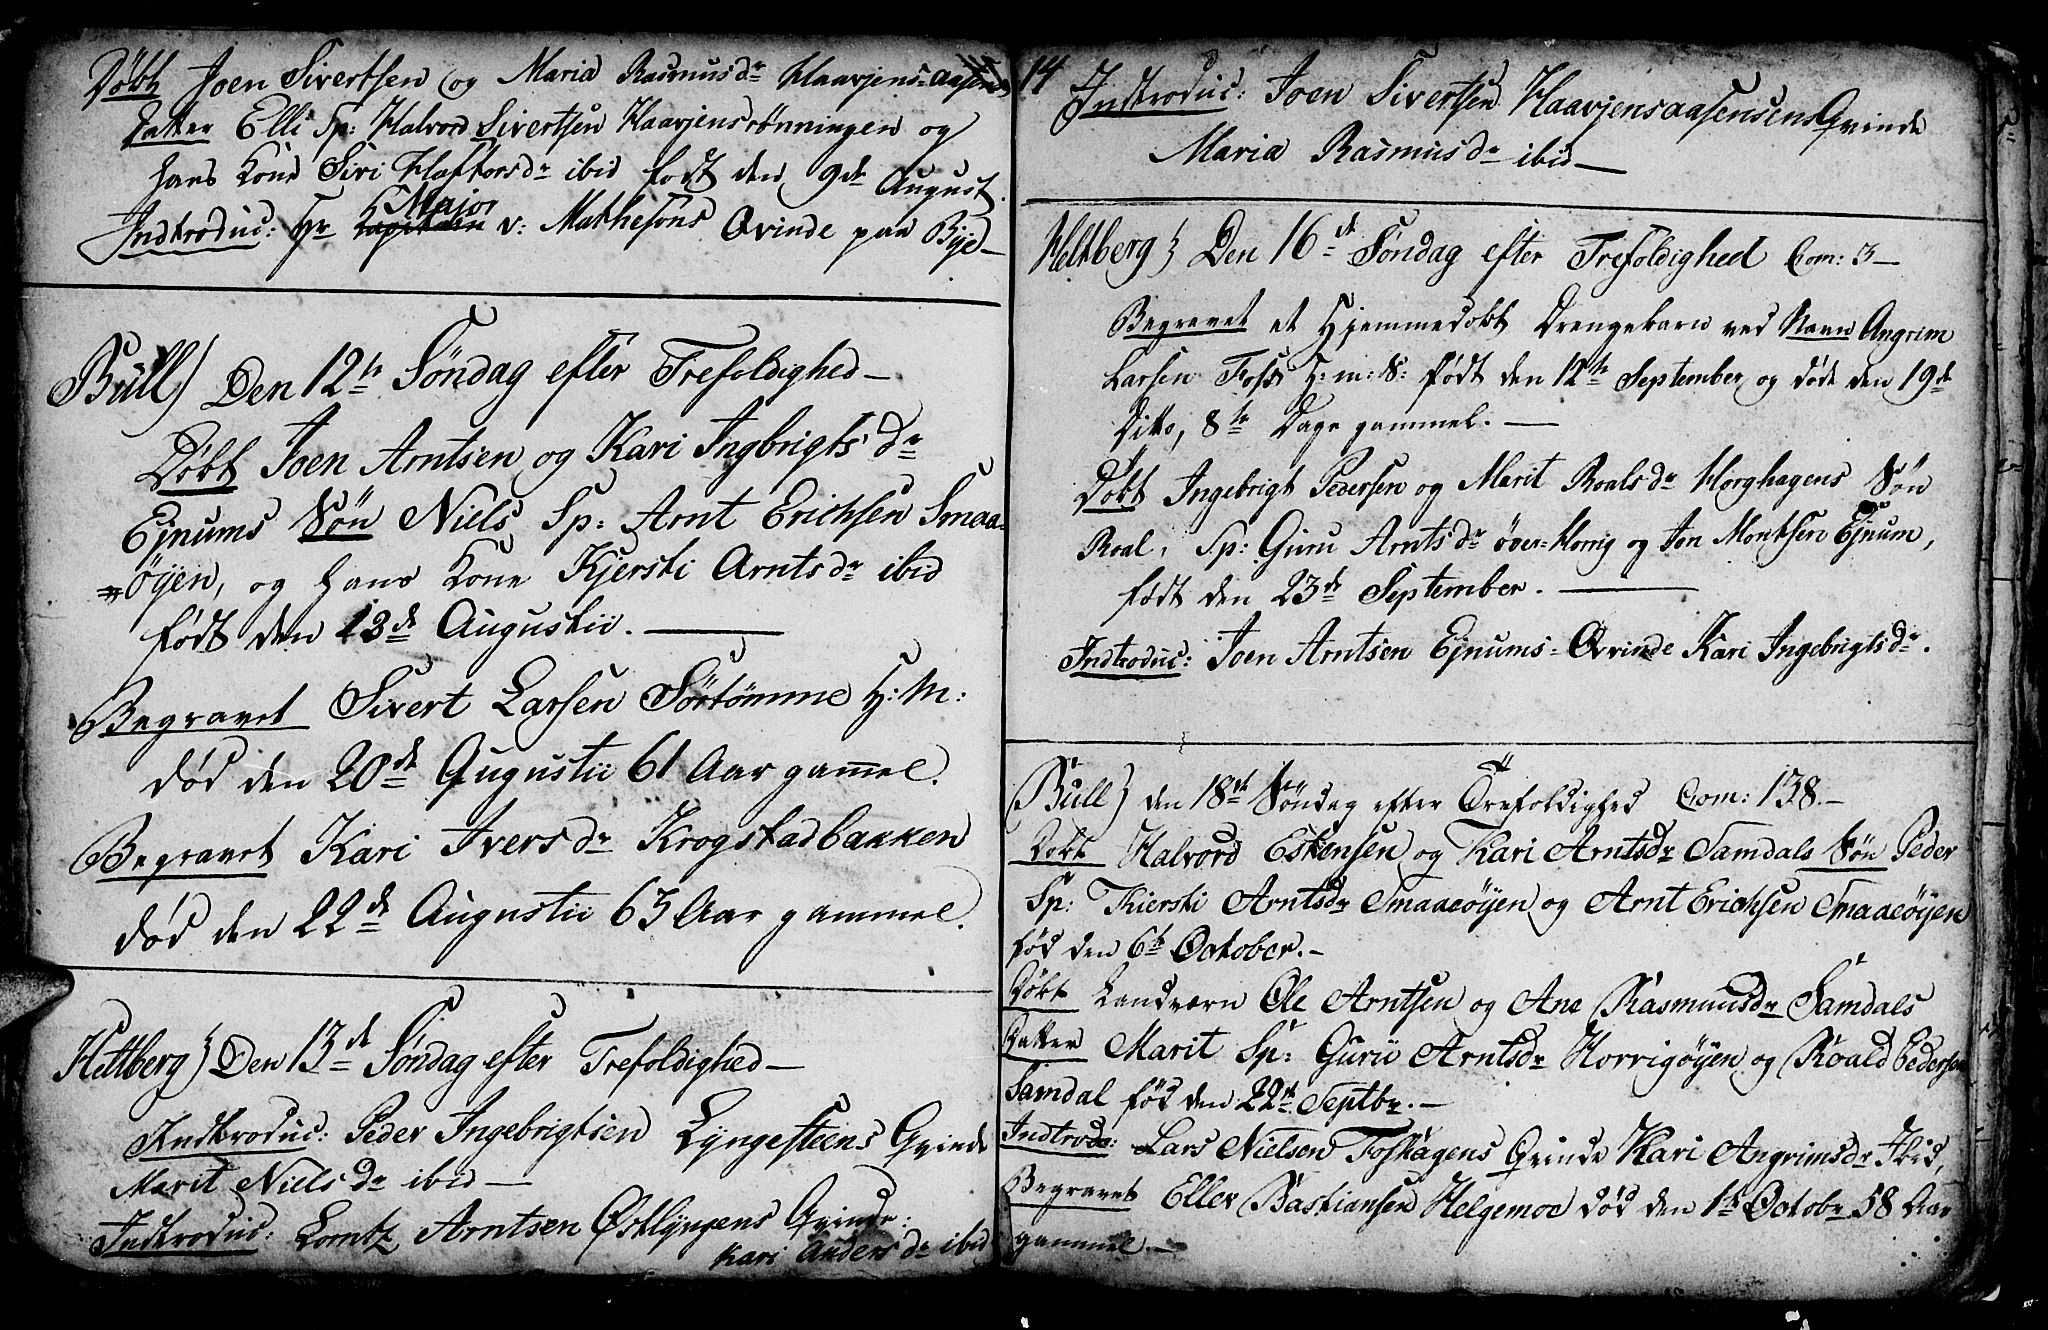 Døbt Joen Sivertsen og Maria Rasmusdr Haavjens-aasens
Datter Elli Sp: Halvord Sivertsen Haavjensrønningen og
hans Kone Siri Haftorsdr ibid født den 9de August.
Major
Indtroduc: Hr Capitain v: Mathesons Qvinde paa Bye—
Bull) Den 12te Søndag efter Trefoldighed—
Døbt Joen Arntsen og Kari Ingbrigtsdr
Ejnums Søn Niels Sp: Arnt Erichsen Smaa-
=øyen, og hans Kone Kjersti Arntsdr ibid
født den 13de Augustii.—
Begravet Sivert Larsen Sørtømme H:M:
død den 20de Augustii 61 Aar gammel.
Begravet Kari Iversdr Krogstadbakken
død den 22de Augustii 63 Aar gammel.
Heltberg) Den 13de Søndag efter Trefoldighed—
Indtroduc: Peder Ingebrigtsen Lyngesteens Qvinde
Marit Nielsdr ibid—
Indtroduc: Lorntz Arntsen Østlyngens Qvinde:
Kari Andersdr ibid
14
Indtroduc: Joen Sivertsen Haavjensaasensens Qvinde
Maria Rasmusdr ibid—
Heltberg) Den 16de Søndag efter Trefoldighed Com: 3—
Begravet et Hjemmedøbt Drengebarn ved Navn Angrim
Larsen Foss H:m:S: født den 12te September og døde den 19de
Ditto, 8te Dage gammel.—
Døbt Ingebrigt Pedersen og Marit Roalsdr Horghagens Søn
Roal, Sp: Guru Arntsdr øver-Horrig og Jon Montsen Ejnum,
født den 23de September.—
Indtroduc: Joen Arntsen Ejnums-Qvinde Kari Ingebrigtsdr.
Bull) den 18de Søndag efter Trefoldighed Com: 138.—
Døbt Halvord Estensen og Kari Arntsdr Samdals Søn Peder
Sp: Kiersti Arntsdr Smaaeøyen og Arnt Erichsen Smaaeøyen
fød den 6te October.—
Døbt Landværn Ole Arntsen og Ane Rasmusdr Samdals
Datter Marit Sp: Guru Arntsdr Horrigøyen og Roald Pedersen
Samdal fød den 22de Septbr.—
Indtrodu: Lars Nielsen Foshagens Qvinde Kari Angrimsdr Ibid,
Begravet Eller Bastiansen Helgemoe død den 1te Octobr 58 Aar
gammel.—